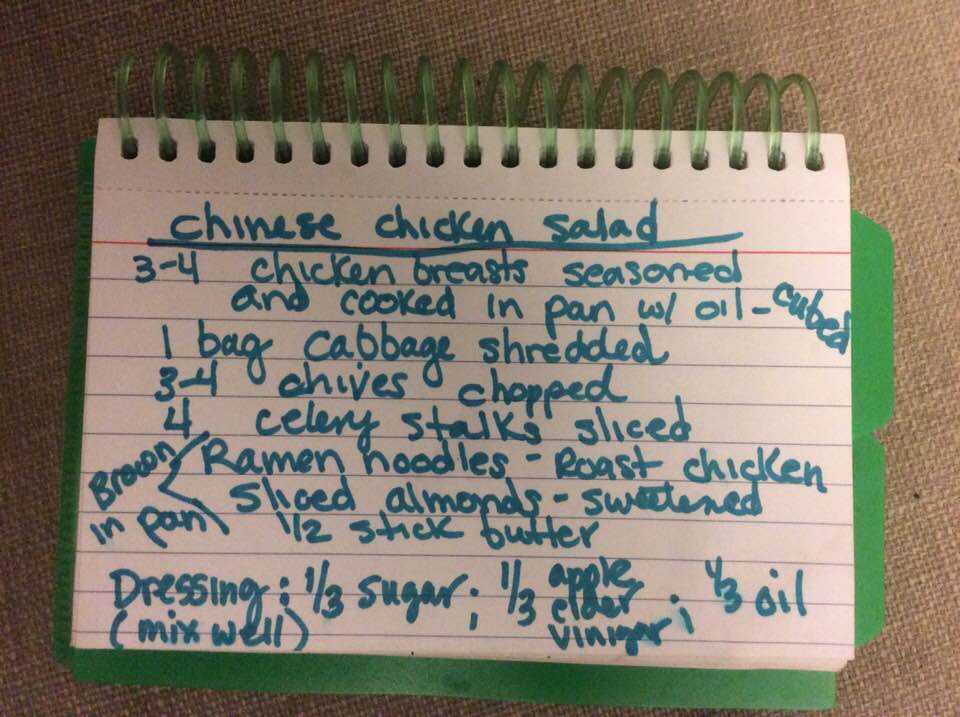 Chinese chicken salad
3-4 chicken breasts seasoned
and cooked in pan w/ oil - cubed
1 bag cabbage shredded
3-4 chives chopped
4 celery stalks sliced
Brown in pan
Ramen noodles - Roast chicken
sliced almonds - sweetened
1/2 stick butter
Dressing: 1/3 sugar; 1/3 apple cider vinigar; 1/3 oil
(mix well)